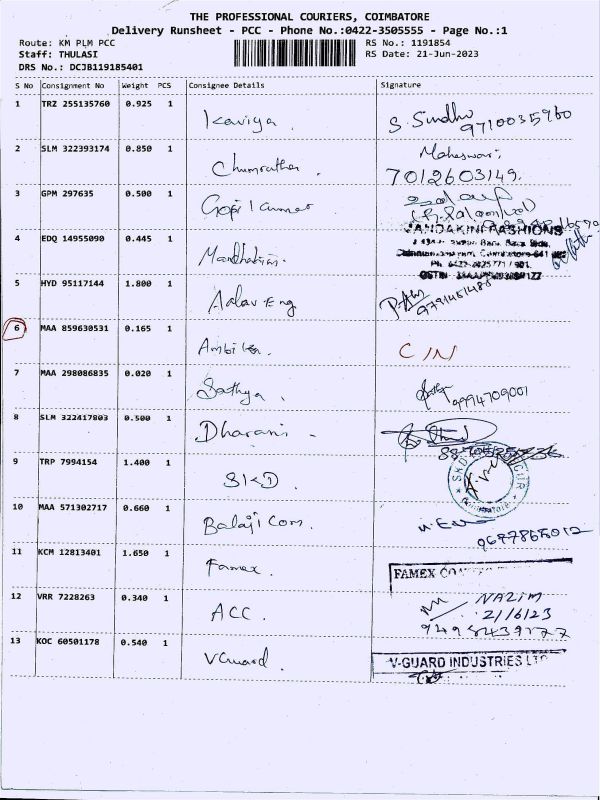 THE PROFESSIONAL COURIERS, COIMBATORE
Delivery Runsheet - PCC - Phone No.:0422-3505555 - Page No.:1
Route: KM PLM PCC RS No.: 1191854
Staff: THULASI RS Date: 21-Jun-2023
DRS No.: DCJB119185401
S No Consignment No Weight PCS Consignee Details Signature
1 TRZ 255135760 0.925 1 Kaviya. S. Sindhu 9710035960
2 SLM 322393174 0.850 1 Maheswari
7012603149.
3 GPM 297635 0.500 1 Gopi Kumar
4 EDQ 14955090 0.445 1 FASHIONS
5 HYD 95117144 1.800 1 Aalav Eng
6 MAA 859630531 0.165 1 Ambika. C/N
7 MAA 298086835 0.020 1 Sathya. 9994709001
8 SLM 322417803 0.500 1 Dharani -
9 TRP 7994154 1.400 1 SKD
10 MAA 571302717 0.660 1 Balaji Com.
11 KCM 12813401 1.650 1 Famex. FAMEX
12 VRR 7228263 0.340 1 ACC. NAZIM
21/6/23
13 KOC 60501178 0.540 1 VGuard. V-GUARD INDUSTRIES LTD